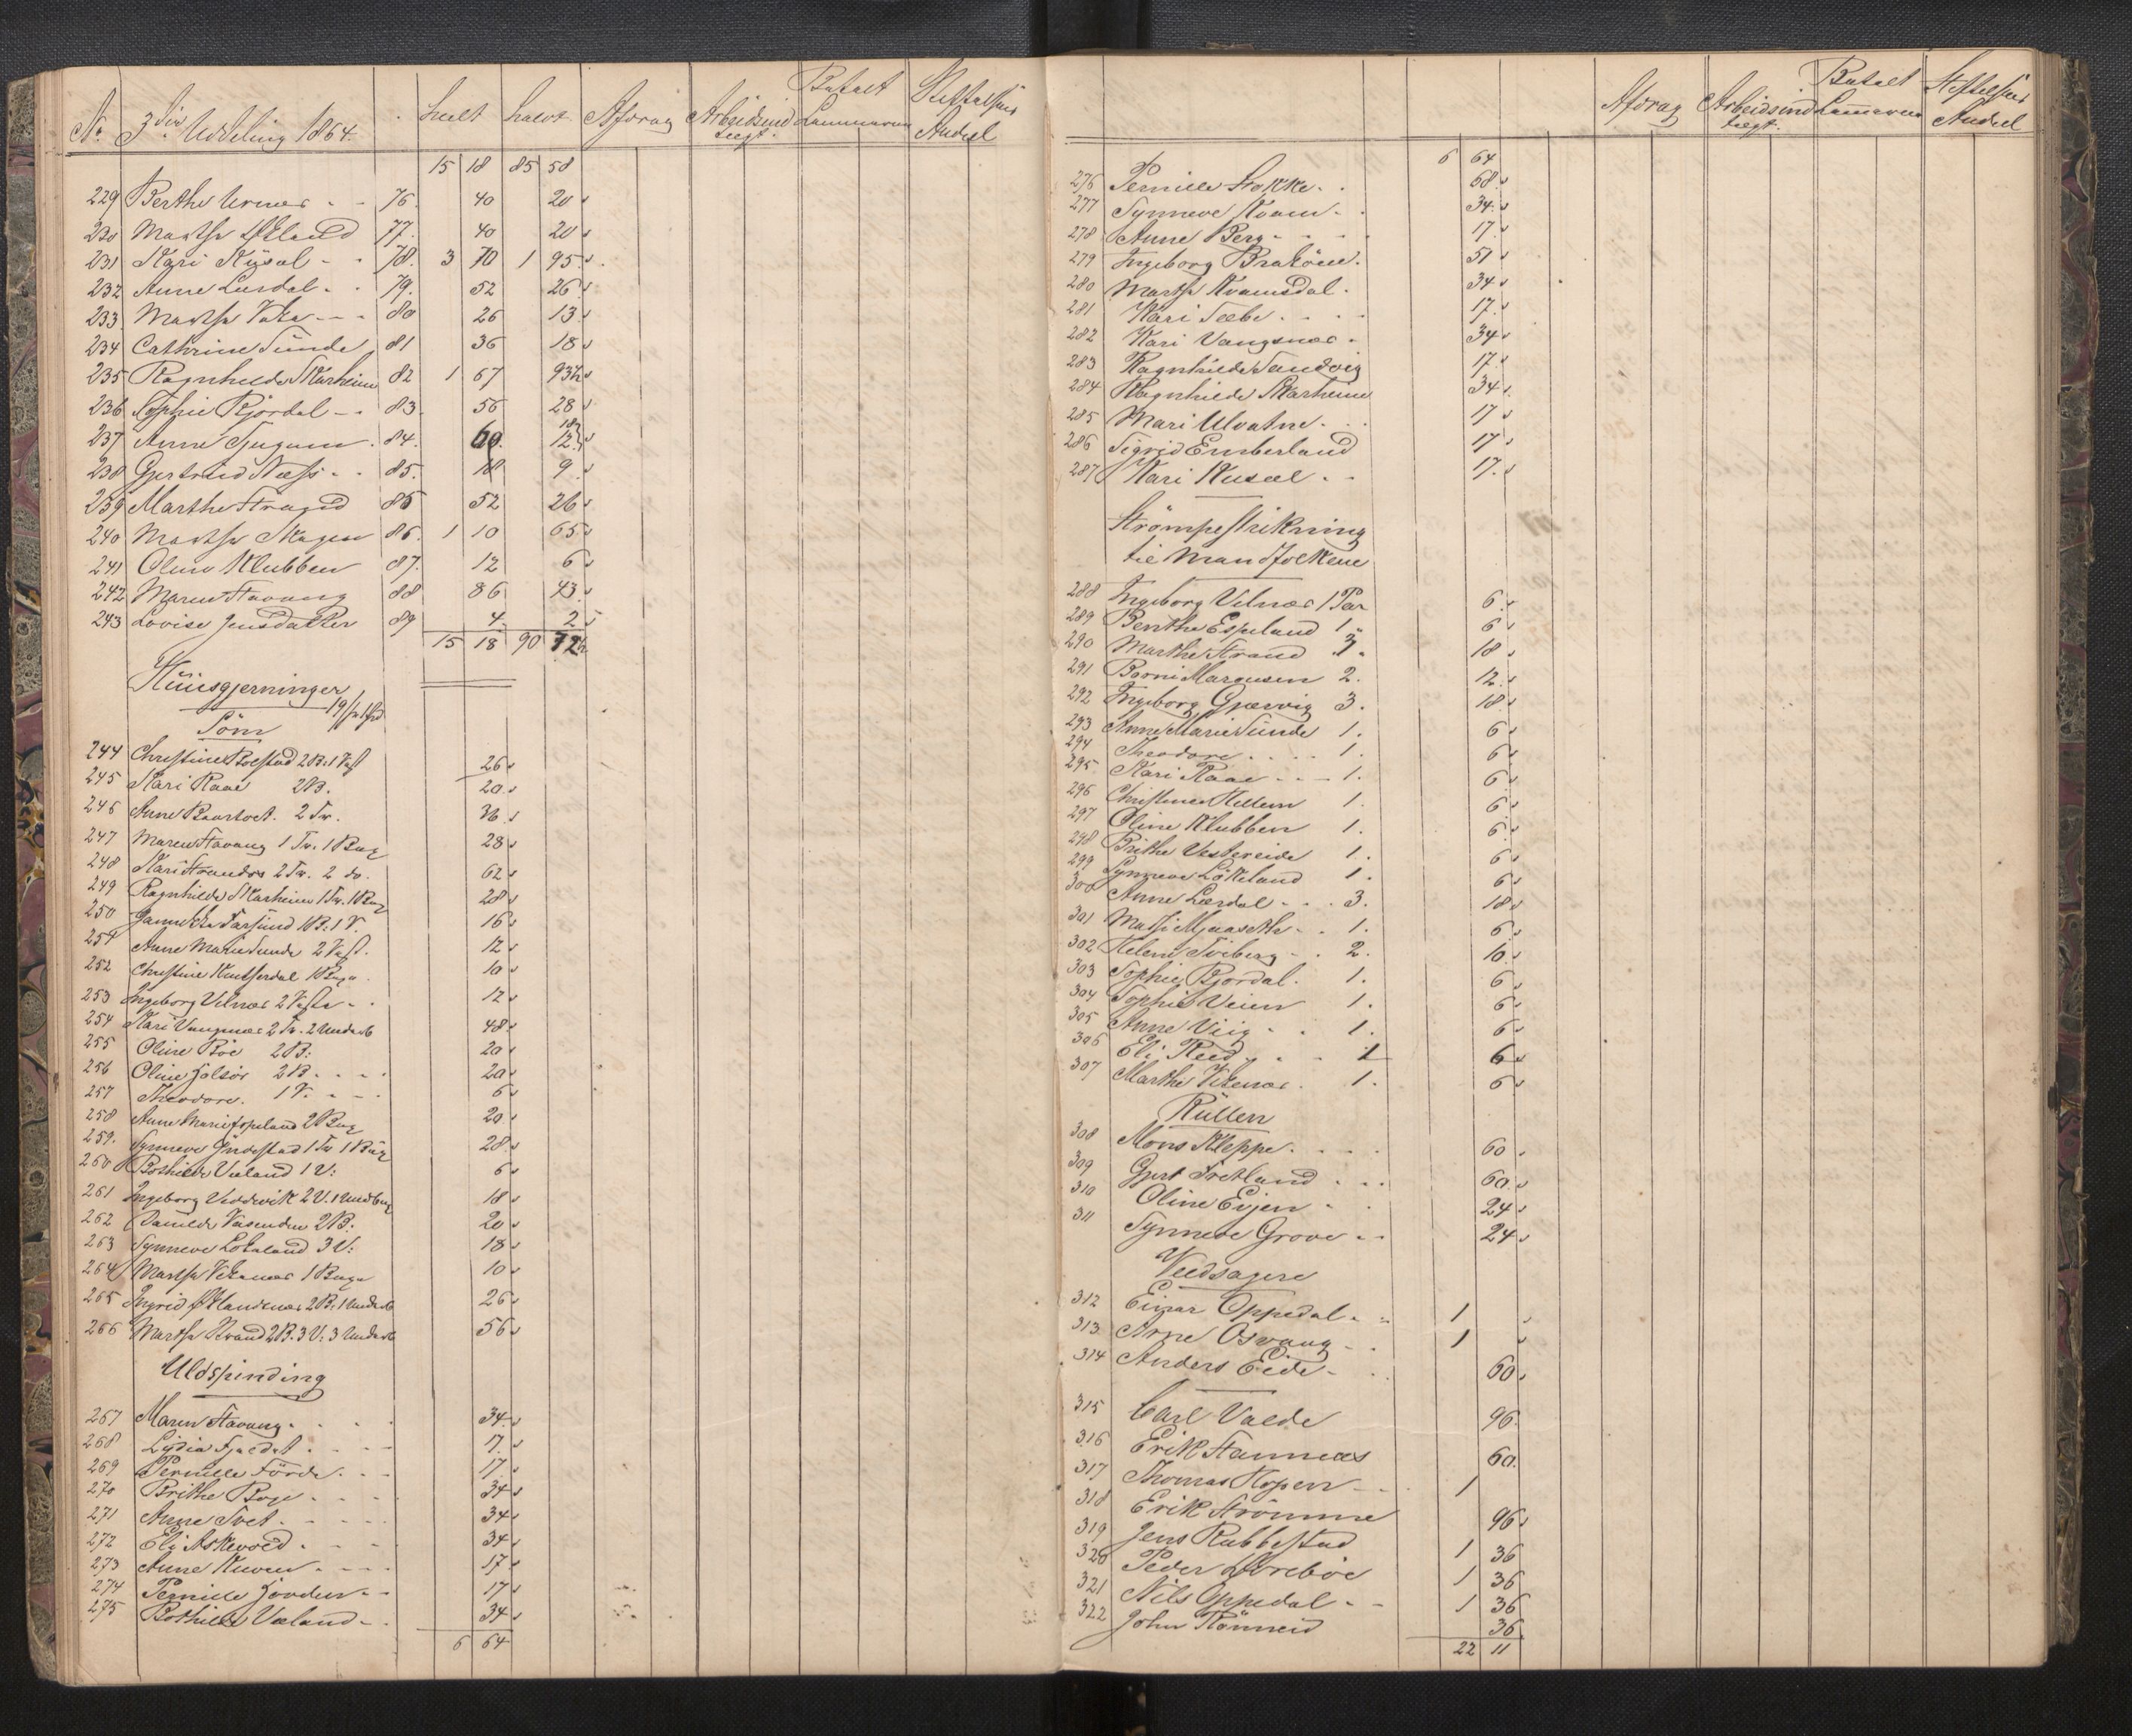 No 3die Uddeling 1864. heelt halvt Afdrag Arbeidsind Betalt Stiftelsens
tægt. Lommerne Andeel
15 18 85 58
229 Berthe Urnæs - - 76. 40 20
230 Marthe Økland 77. 40 20
231 Kari Küsæl - - 78. 3 70 1 95
232 Anne Lærdal - - 79. 52 26
233 Marthe - - - 80 26 13
234 Cathrine Sünde 81 36 18
235 Ragnhilde Skarheim 82 1 67 93½
236 Sophie Bjordal - - 83. 56 28
237 Anne Tjugum . 84. 60. 12
238 Gjertrud Næss - - 85. 18 9
239 Marthe Strand 86 52 26
240 Marthe Skagen 86. 1 10 65
241 Oline Klubben 87. 12 6
242 Maren Stavang 88 86 43
243 Lovise Jensdatter 89 4 2
15 18 90 72½
Hüüsgjerninger
Söm
244 Christine Bolstad 2 B: 1 Vest 26
245 Kari Raae 2 B. 20
246 Anne 2 Tr. 36
247 Maren Stavang 1 Tr. 1 Bux 28
248 Kari 2 Tr. 2 do. 62
249 Ragnhilde Skarheim 1 Tr. 1 Bux 28
250 Farsund 1 B: 1 V. 16
251 Anne Marie Sunde 2 Vest. 12
252 Christine 1 Buxe 10
253 Ingeborg Velnæs 2 Veste - 12
254 Kari Vangsnæs 2 Tr. 2 Underb 48
255 Oline Böe 2 B: 20
256 Oline 2 B - - - 20
257 Theodore. 1 V. - - - 6
258 Anne Marie Espeland 2 Bux 20
259. Synneve 1 Tr 1 Bux 28
260 Bothilde Væland 1 V: 6
261 Ingeborg 2 V. 1 Underbux 18
262 Vasenden 2 B. 20
263 Synneve Lökeland 3 V: 18
264 Marthe Vikenæs 1 Buxe 10
265 Ingrid 2 B: 1 Underb 26
266 Marthe 2 B. 3 V: 3 Underb 56
Uldspinding
267 Maren Stavang. - - - 34
268 Lydia - - - 17
269 Pernille Förde. - - 17
270 Brithe Boge - - - 34
271 Anne Tvet - - - - 34
272 Eli Askevold. - - - 34
273 Anne - - - - 17
274 Pernille - - 17
275 Bothilde Væland - . 34
6 64
Afdrag Arbeidsind Betalt Stiftelsens
tægt. Lommerne Andeel
6 64
276 Pernille Stokke. . 68
277 Synneve Kvam - . 34
278 Anne Berg - - - - 17
279 Ingeborg . 51
280 Marthe Kvamsdal . 34
281 Kari Sæbø . - - - 17
282 Kari Vangsnæs - 34
283 Ragnhilde Sandvig 17
284 Ragnhilde Skarheim 34
285 Mari Ulvatne. . . 17
286 Sigrid Emberland 17
287 Kari Küsæl . . 17
Strömpestrikning
til Mandfolkene
288 Ingeborg Velnæs 1 Par 6
289 Benthe Espeland 1 " 6
290 Marthe Strand 3 . 18
291 Marcusen 2. 12
292 Ingeborg 3. 18
293 Anne Marie Sünde 1. 6
294 Theodore . . . . 1. 6
295 Kari Raae - - - 1. 6
296 Christine Hellem 1. 6
297 Oline Klubben 1. 6
298 Brithe Vestereide 1. 6
299 Synneve Lökeland 1. 6
300 Anne Lærdal - - - 3. 18
301 - - 1. 6
302 Helene - - 2. 10
303 Sophie Bjordal. 1. 6
304 Sophie Veien 1. 6
305 Anne Viig - . 1. 6
306 Eli Reed - - 1 6
307 Marthe Vikenæs. 1. 6
Küllen
308 Mons Kleppe. - - - 60
309 Gjert Tretland . . . 60
310 Oline Eijen - . 24
311 Synneve Grove - - 24
Veedsagere
312 Einar Oppedal - - 1
313 Arne Osvang - . 1
314 Anders Eide - . . 60
315 Carl Valde 96.
316 Erik Stamnæs 60.
317 Thomas Kopen - - . 1
318 Erik Strömme 96
319 Jens Rabbestad 1 36
320 Peder 1 36
321 Nils Oppedal - - 1 36
322 John Rönneid 36
22 11